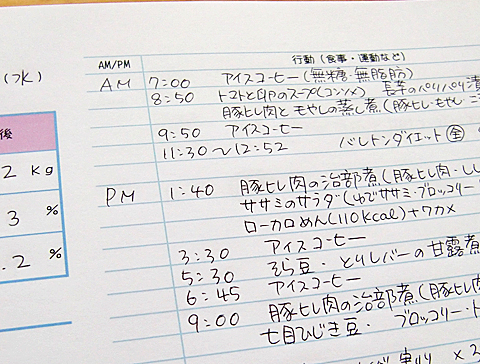 AM/PM 行動(食事・運動など)
(水)
AM 7:00 アイスコーヒー(無糖・無脂肪)
8:50 トマトと卵のスープ(コンソメ) 長芋のパリパリ漬
豚ヒレ肉ともやしの蒸し煮(豚ヒレ・もやし
後
9:50 アイスコーヒー
2 Kg
11:30〜12:52 バレトンダイエット 全
PM 1:40 豚ヒレ肉の治部煮(豚ヒレ肉・しし
3 %
ササミのサラダ(ゆでササミ・ブロッコリー
ローカロめん(110kcal)+ワカメ
.2 %
3:30 アイスコーヒー
5:30 そら豆・とりレバーの甘露煮
6:45 アイスコーヒー
9:00 豚ヒレ肉の治部煮(豚ヒレ肉
七目ひじき豆・ブロッコリー・ト
×3